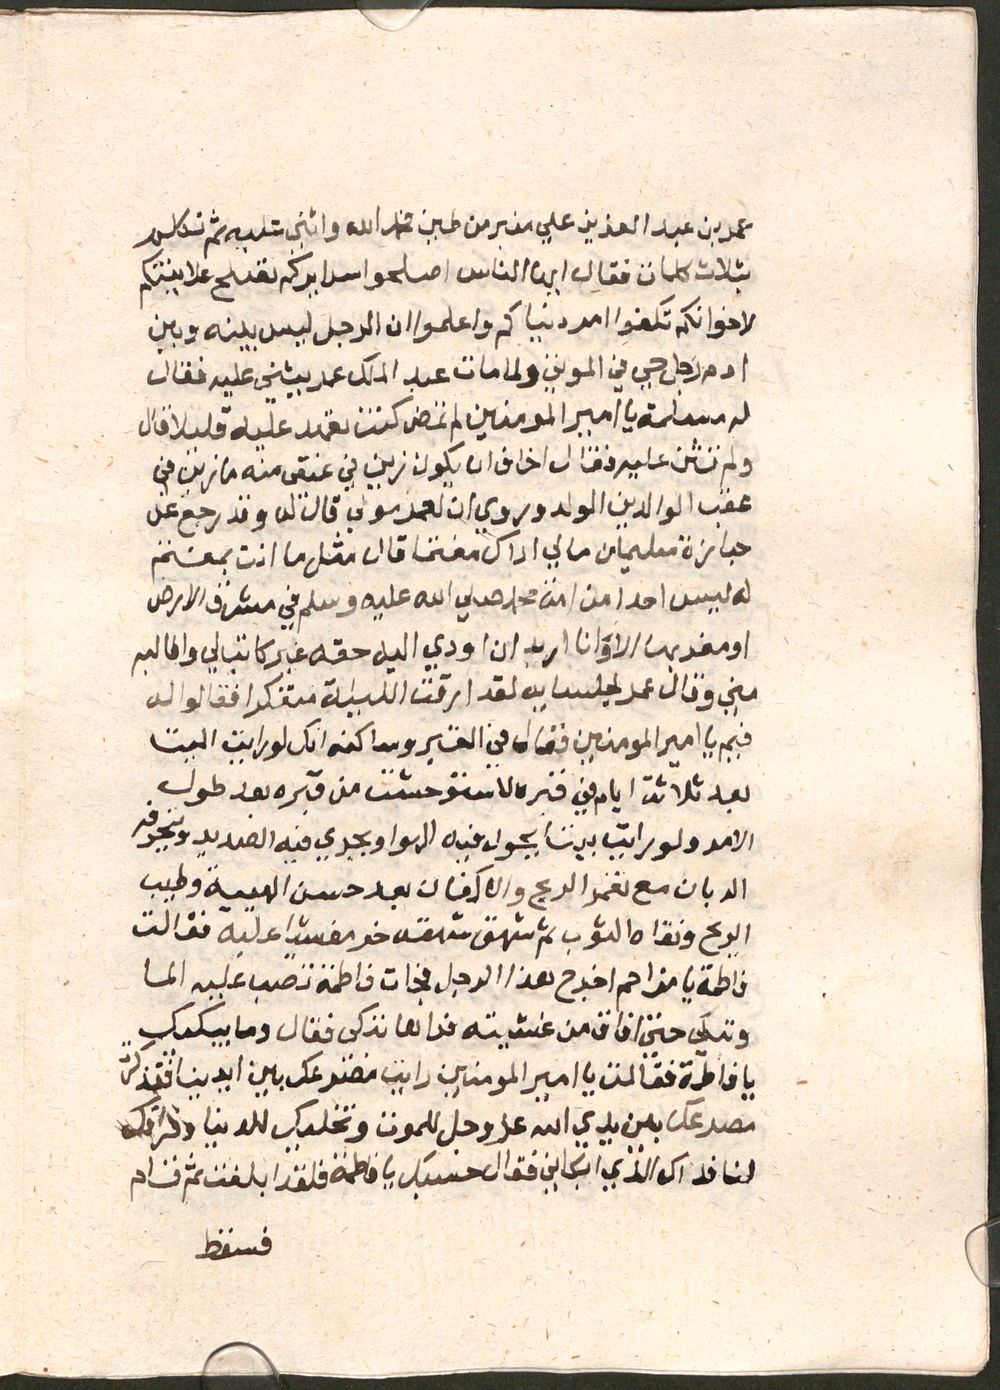 عمر بن عبد العزيز علي منبر من طين فحمد الله واثني عليه ثم تكلم
بثلاث كلمات فقال ايها الناس اصلحوا سرايركم تصلح علانيتكم
لاخوانكم تكفوا امر دنياكم واعلموا ان الرجل ليس بينه وبين
ادم رجل حي في الموتي ولما مات عبد الملك عمر يبثني عليه فقال
له مسلمة يا امير المومنين لم تمض كنت تعهد عليه قليلا قال
ولم نثن عليه فقال اخاف ان يكون زين في عنقى منه ما زين في
عقب الوالدين الولد وروي ان لعمر مولي قال له وقد رجع عن
جنازة سليمان ما لي اراك مغتما قال مثل ما انت بمغتم
له ليس احدا من امة محمد صلي الله عليه وسلم في مشرق الارض
او مغربها الا وانا اريد ان اودي اليه حقه غير كاتب لي والطالبه
مني وقال عمر لجلسايه لقد ارقت الليلة متفكرا فقالوا له
فيم يا امير المومنين فقال في القبر وساكنه انك لو رايت الميت
بعد ثلاثة ايام في قبره لاستوحشت من قبره بعد طول
الامد ولو رايت بيتا يجول فيه الهوا ويجري فيه الصديد ويخرقه
الديان مع تغير الريح والاكفان بعد حسن الهيية وطيب
الريح ونقاه الثوب ثم شهق شهقه خر مغشيا عليه فقالت
فاطمة يا مزاحم اخرج هذا الرجل فجات فاطمة تصب عليه الما
وتبكي حتي افاق من غشيته فراها تبكى فقال وما يبكيك
يا فاطمة فقالت يا امير المومنين رايت مصرعك بين ايدينا فتذكرت
مصرعك بين يدي الله عز وجل للموت وتخليك للدنيا وفراقك
لنا فذاك الذي ابكاني فقال حسبك يا فاطمة فلقد ابلغت ثم قام
فسقط